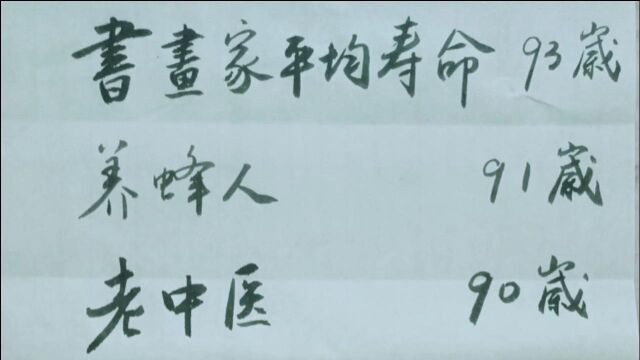 書畫家平均寿命 93歲
养蜂人 91歲
老中医 90歲